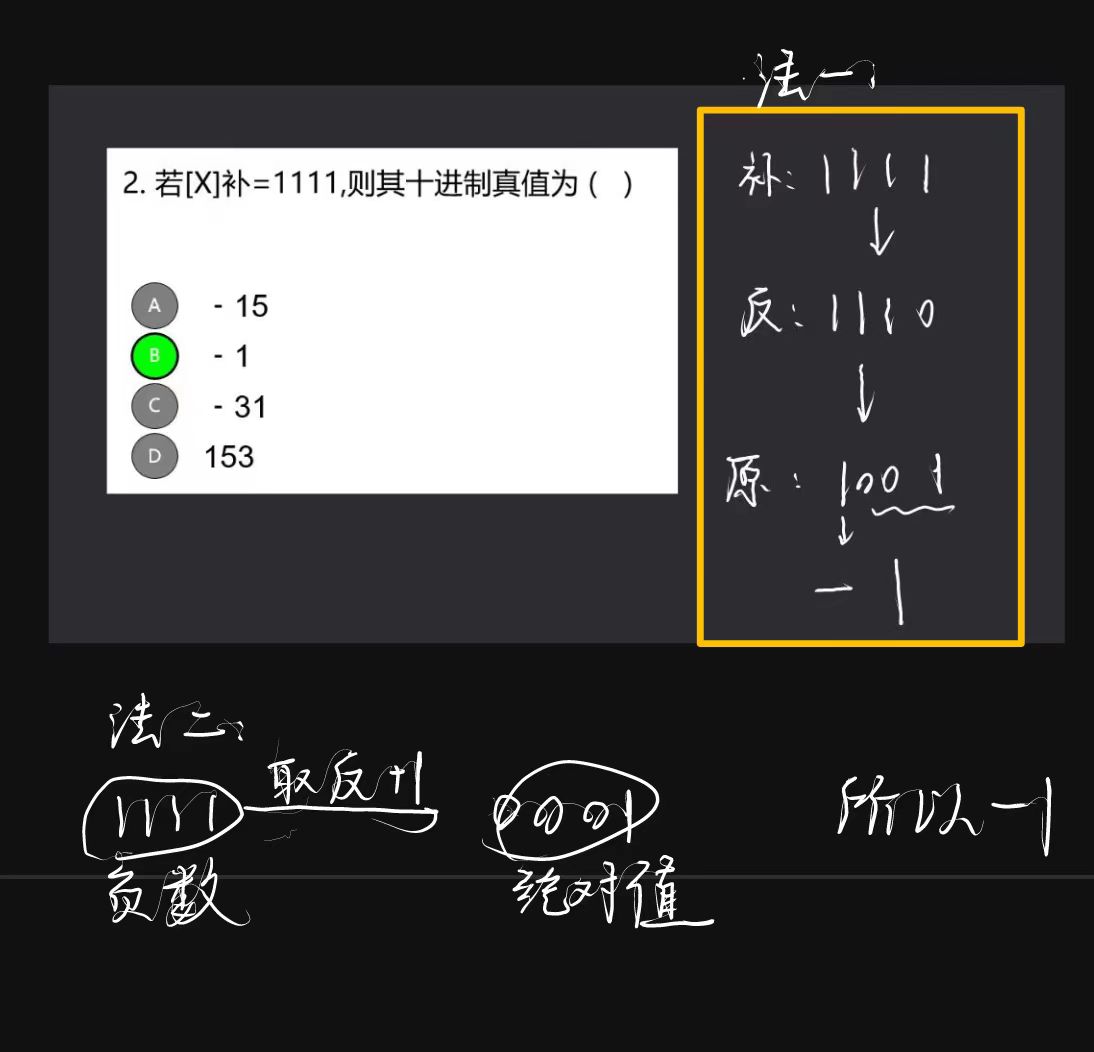 法一:
2. 若[X]补=1111,则其十进制真值为（ ）
A - 15
B - 1
C - 31
D 153
补: 1111
↓
反: 1110
↓
原: 1001
↓
- 1
法二:
1111 取反+1 0001 所以-1
负数 绝对值